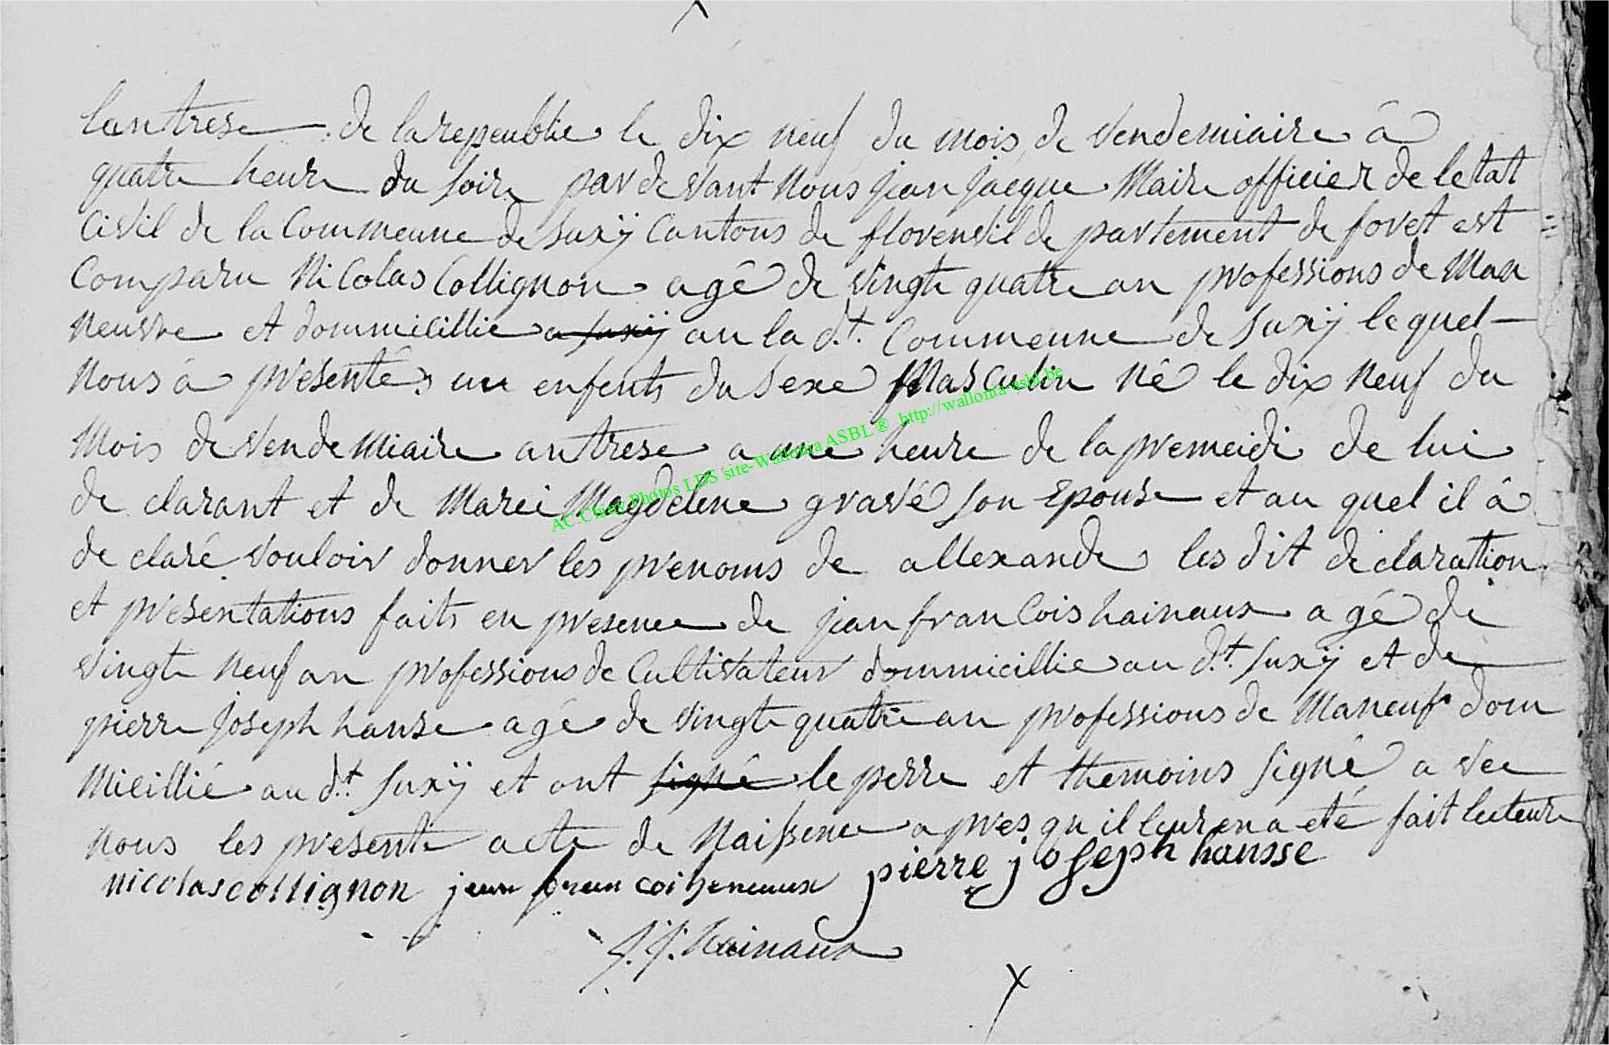 lantrese de la repeublie le dix neuf du mois de vendemiaire à
quatre heure du soire par de vant nous jean jacque Maire officier de letat
Civil de la Commeune de Suxÿ Cantons de florenvil de partement de foret est
Comparu Nicolas Collignon agé de vingte quatre an professions de Man
neuvre et dommicillie a Suxÿ au la d.t Commeune de Suxÿ le quel
Nous à présenté un enfents du sexe Masculin né le dix neuf du
Mois de vendemiaire antrese a une heure de la premeidi de lui
de clarant et de Marei Magdelene gravé son Epouse et au quel il à
de claré vouloir donner les prenoms de allexande les dit declaration
et presentations faits en presence de jean francois hainaux agé de
vingte neuf an professions de Cultivateur dommicillie au d.t Suxÿ et de
pierre joseph hanse agé de vingte quatre an professions de Maneuf dom
micillié au d.t Suxÿ et ont signé le perre et themoins signé a vec
nous les presente acte de Naissence apres qu il leur en a eté fait lecteure
nicolas collignon jean fran cois heneaux pierre joseph hansse
J.J. hainaux
AC Chiny Photos LDS site-Wallonia ASBL ® http://wallonia-asbl.be